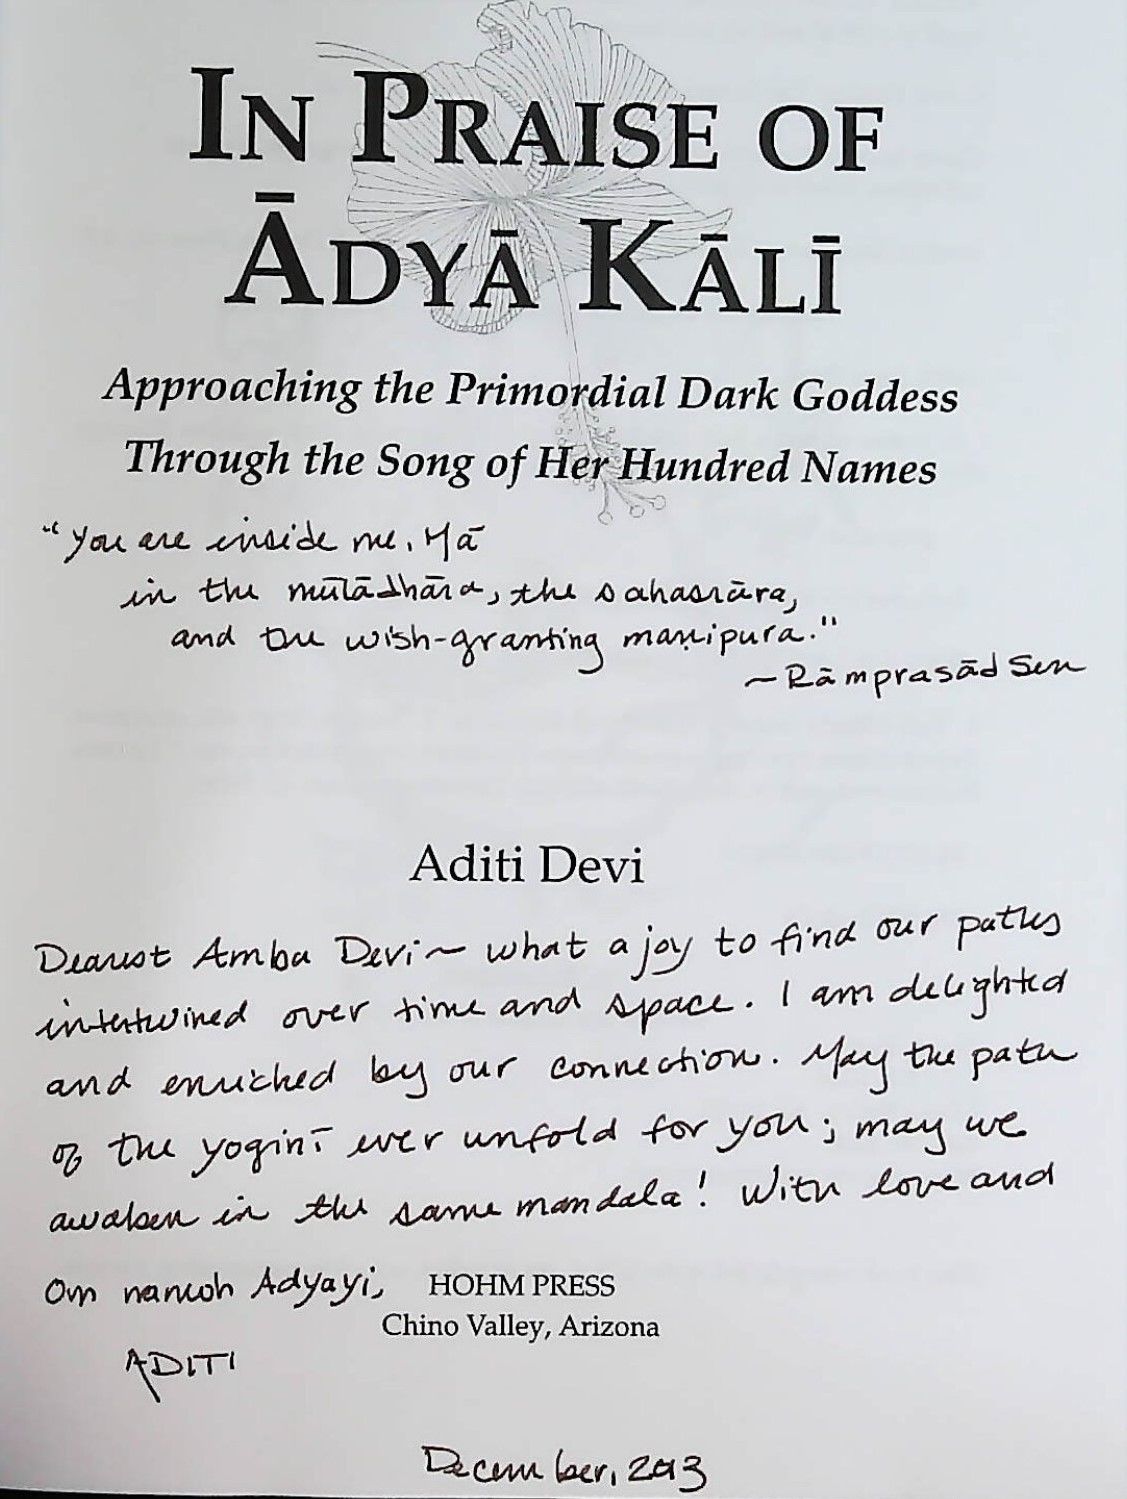 IN PRAISE OF
ĀDYĀ KĀLĪ
Approaching the Primordial Dark Goddess
Through the Song of Her Hundred Names
"You are inside me, Mā
in the mūlādhāra, the sahasrāra,
and the wish-granting maṇipura."
~Rāmprasād Sen
Aditi Devi
Dearest Amba Devi~ what a joy to find our paths
intertwined over time and space. I am delighted
and enriched by our connection. May the path
of the yoginī ever unfold for you; may we
awaken in the same mandala! With love and
Om namoh Adyayi,
HOHM PRESS
Chino Valley, Arizona
ADITI
December, 2013